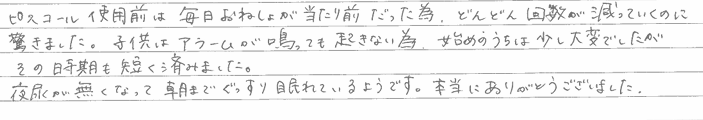 ピスコール使用前は毎日おねしょが当たり前だった為、どんどん回数が減っていくのに
驚きました。子供はアラームが鳴っても起きない為、始めのうちは少し大変でしたが
その時期も短く済みました。
夜尿が無くなって朝までぐっすり眠れているようです。本当にありがとうございました。